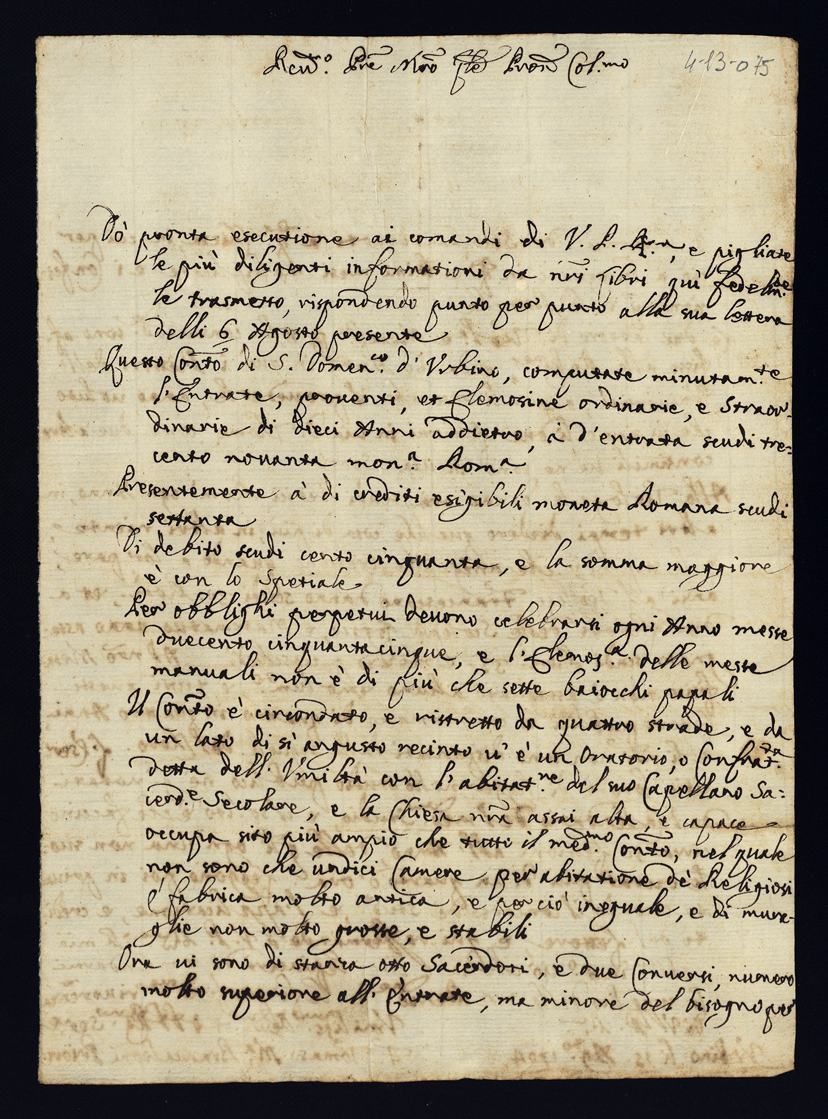 Rev.mo Pre Mro Sle Pron Col.mo
4-13-075
Dò pronta esecutione ai comandi di V. P. R.ma, e pigliate
le più diligenti informationi da nri libri quì fedelm.te
le trasmetto, rispondendo punto per punto alla sua lettera
delli 6 Agosto presente
Questo Conto di S. Domen.co d'Urbino, computate minutam.te
l'Entrate, proventi, et Elemosine ordinarie, e straor-
dinarie di dieci Anni addietro, à d'entrata scudi tre=
cento novanta mon.a Rom.a
Presentemente à di crediti esigibili moneta Romana scudi
settanta
Di debito scudi cento cinquanta, e la somma maggiore
è con lo Spetiale
Per obblighi perpetui devono celebrarsi ogni Anno messe
duecento cinquantacinque, e l'Elemos.a delle messe
manuali non è di più che sette baiocchi papali
Il Conto è circondato, e ristretto da quattro strade, e da
un lato di sì angusto recinto v'è un Oratorio, o Confrat.ta
detta dell'Umiltà con l'abitat.ne del suo Capellano Sa=
cerd.e Secolare, e la Chiesa nra assai alta, e capace
occupa sito più ampio che tutto il med.mo Conto, nel quale
non sono che undici Camere per abitatione de Religiosi
è fabrica molto antica, e per ciò ineguale, e di mura-
glie non molto grosse, e stabili
Ora vi sono di stanza otto Sacerdoti, e due Conversi, numero
molto superiore all'Entrate, ma minore del bisogno per